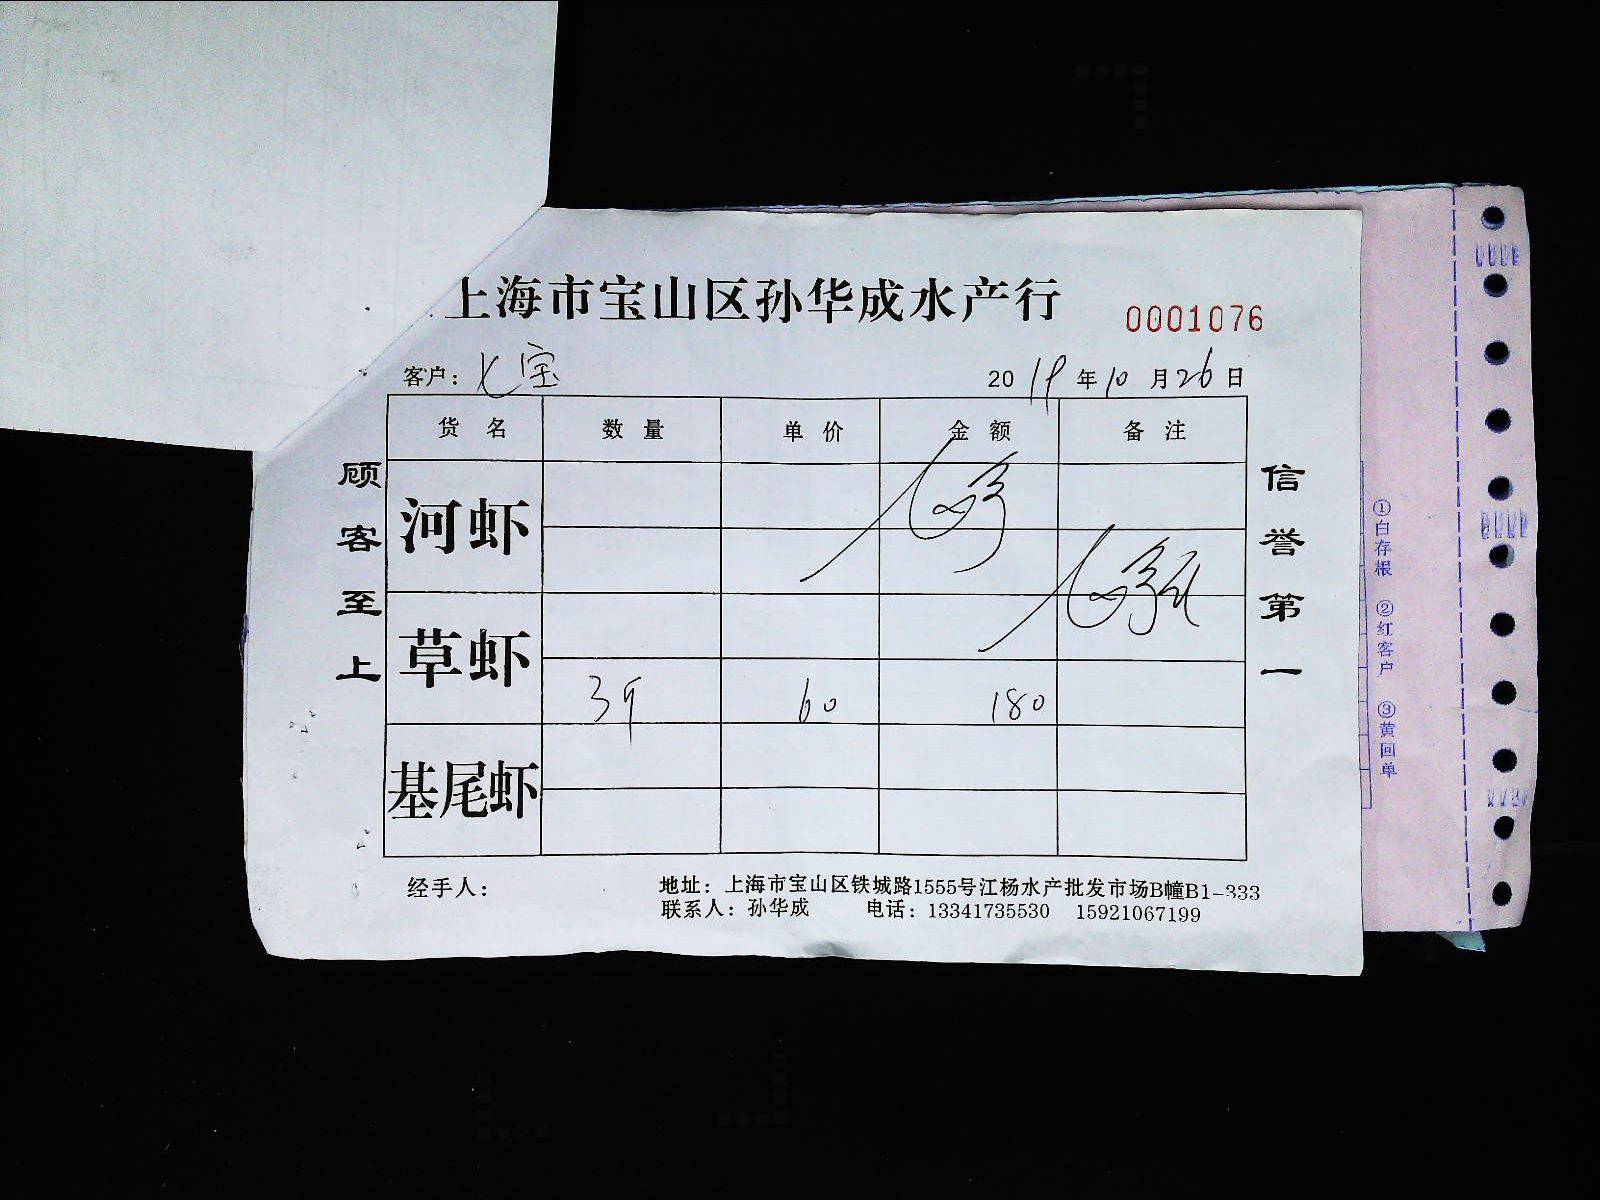 上海市宝山区孙华成水产行
0001076
客户：七宝 2019年10月26日
货名 数量 单价 金额 备注
河虾
草虾
3斤 60 180
基尾虾
顾客至上
信誉第一
①白存根 ②红客户 ③黄回单
经手人： 地址：上海市宝山区铁城路1555号江杨水产批发市场B幢B1-333
联系人：孙华成 电话：13341735530 15921067199